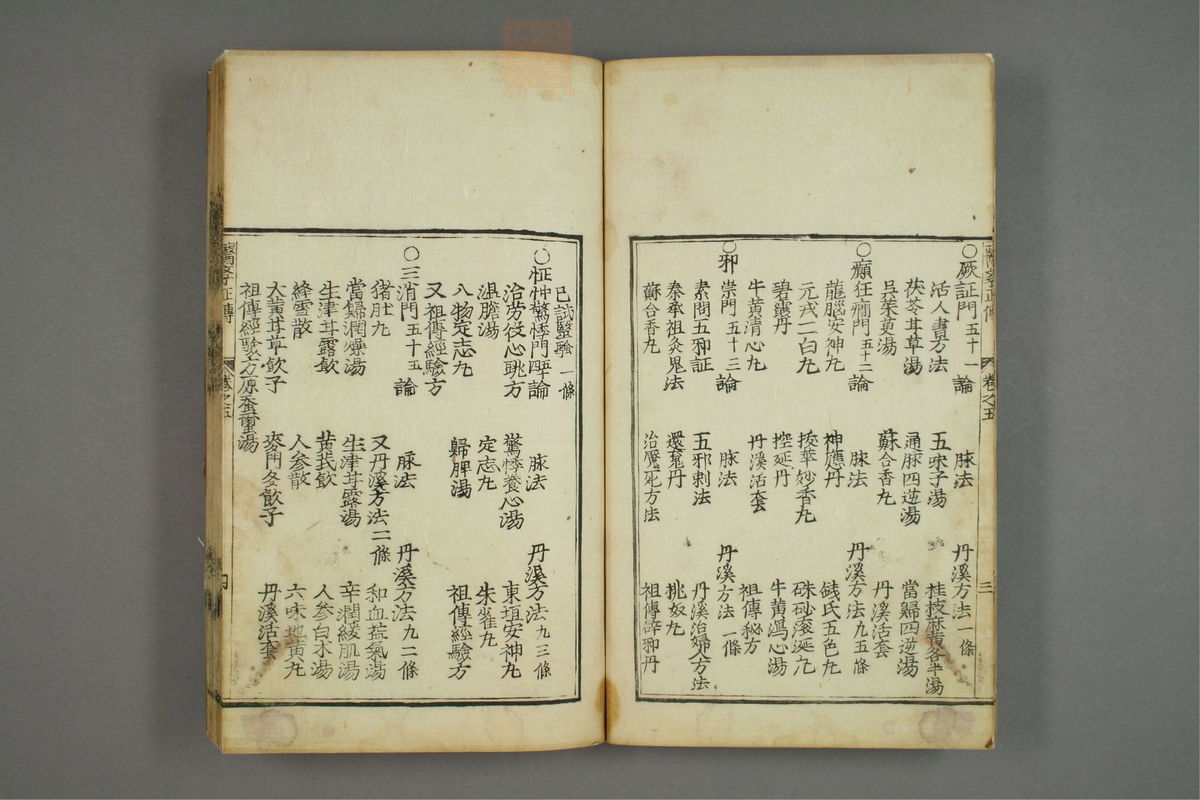 醫學正傳 卷之五 三
○厥証門五十一 論 脉法 丹溪方法一條
活人書方法 五味子湯 桂枝麻黄各半湯
茯苓甘草湯 通脉四逆湯 當歸四逆湯
吴茱萸湯 蘇合香丸 丹溪活套
○癲狂癇門五十二 論 脉法 丹溪方法九五條
龍腦安神丸 神應丹 錢氏五色丸
元戎二白丸 按華妙香丸 硃砂滚涎丸
碧霞丹 控涎丹 牛黄瀉心湯
牛黄清心丸 丹溪活套 祖傳秘方
○邪祟門五十三 論 脉法 丹溪方法一條
素問五邪証 五邪刺法 丹溪治婦人方法
秦承祖灸鬼法 還魂丹 桃奴丸
蘇合香丸 治魘死方法 祖傳辟邪丹
已試醫驗一條
○怔忡驚悸門五十四 論 脉法 丹溪方法九三條
治勞役心跳方 驚悸養心湯 東垣安神丸
温膽湯 定志丸 朱雀丸
八物定志丸 歸脾湯 祖傳經驗方
又祖傳經驗方
○三消門五十五 論 脉法 丹溪方法九二條
猪肚丸 又丹溪方法二條 和血益氣湯
當歸潤燥湯 生津甘露湯 辛潤緩肌湯
生津甘露飲 黄芪飲 人參白朮湯
絳雪散 人參散 六味地黄丸
大黄甘草飲子 麥門冬飲子 丹溪活套
祖傳經驗方原蚕蠒湯
醫學正傳 卷之五 四